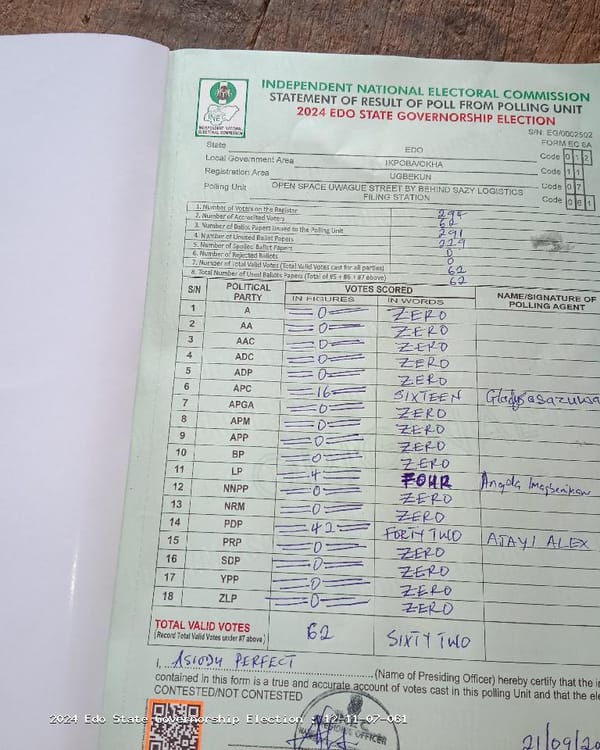 INDEPENDENT NATIONAL ELECTORAL COMMISSION
STATEMENT OF RESULT OF POLL FROM POLLING UNIT
2024 EDO STATE GOVERNORSHIP ELECTION
S/N. EG/0002502
FORM EC 8A
State EDO Code 0 1 2
Local Government Area IKPOBA/OKHA Code 1 1
Registration Area UGBEKUN Code 0 7
Polling Unit OPEN SPACE UWAGUE STREET BY BEHIND SAZY LOGISTICS FILING STATION Code 0 6 1
1. Number of Voters on the Register 295
2. Number of Accredited Voters 62
3. Number of Ballot Papers Issued to the Polling Unit 291
4. Number of Unused Ballot Papers 229
5. Number of Spoiled Ballot Papers 0
6. Number of Rejected Ballots 0
7. Number of Total Valid Votes (Total Valid Votes cast for all parties) 62
8. Total Number of Used Ballots Papers (Total of #5 + #6 + #7 above) 62
S/N POLITICAL PARTY VOTES SCORED NAME/SIGNATURE OF POLLING AGENT
IN FIGURES IN WORDS
1 A 0 ZERO
2 AA 0 ZERO
3 AAC 0 ZERO
4 ADC 0 ZERO
5 ADP 0 ZERO
6 APC 16 SIXTEEN
7 APGA 0 ZERO
8 APM 0 ZERO
9 APP 0 ZERO
10 BP 0 ZERO
11 LP 4 FOUR
12 NNPP 0 ZERO
13 NRM 0 ZERO
14 PDP 42 FORTY TWO AJAYI ALEX
15 PRP 0 ZERO
16 SDP 0 ZERO
17 YPP 0 ZERO
18 ZLP 0 ZERO
TOTAL VALID VOTES 62 SIXTY TWO
(Record Total Valid Votes under #7 above)
I, ASIODU PERFECT (Name of Presiding Officer) hereby certify that the
contained in this form is a true and accurate account of votes cast in this polling Unit and that the
CONTESTED/NOT CONTESTED
2024 Edo State Governorship Election : 12-11-07-061
21/09/20